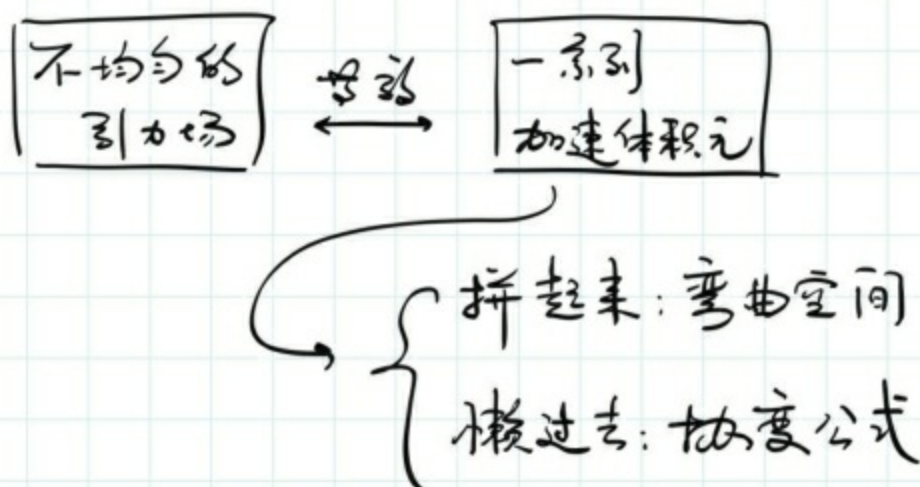 不均匀的
引力场
等效
一系列
加速体积元
拼起来：弯曲空间
懒过去：协变公式